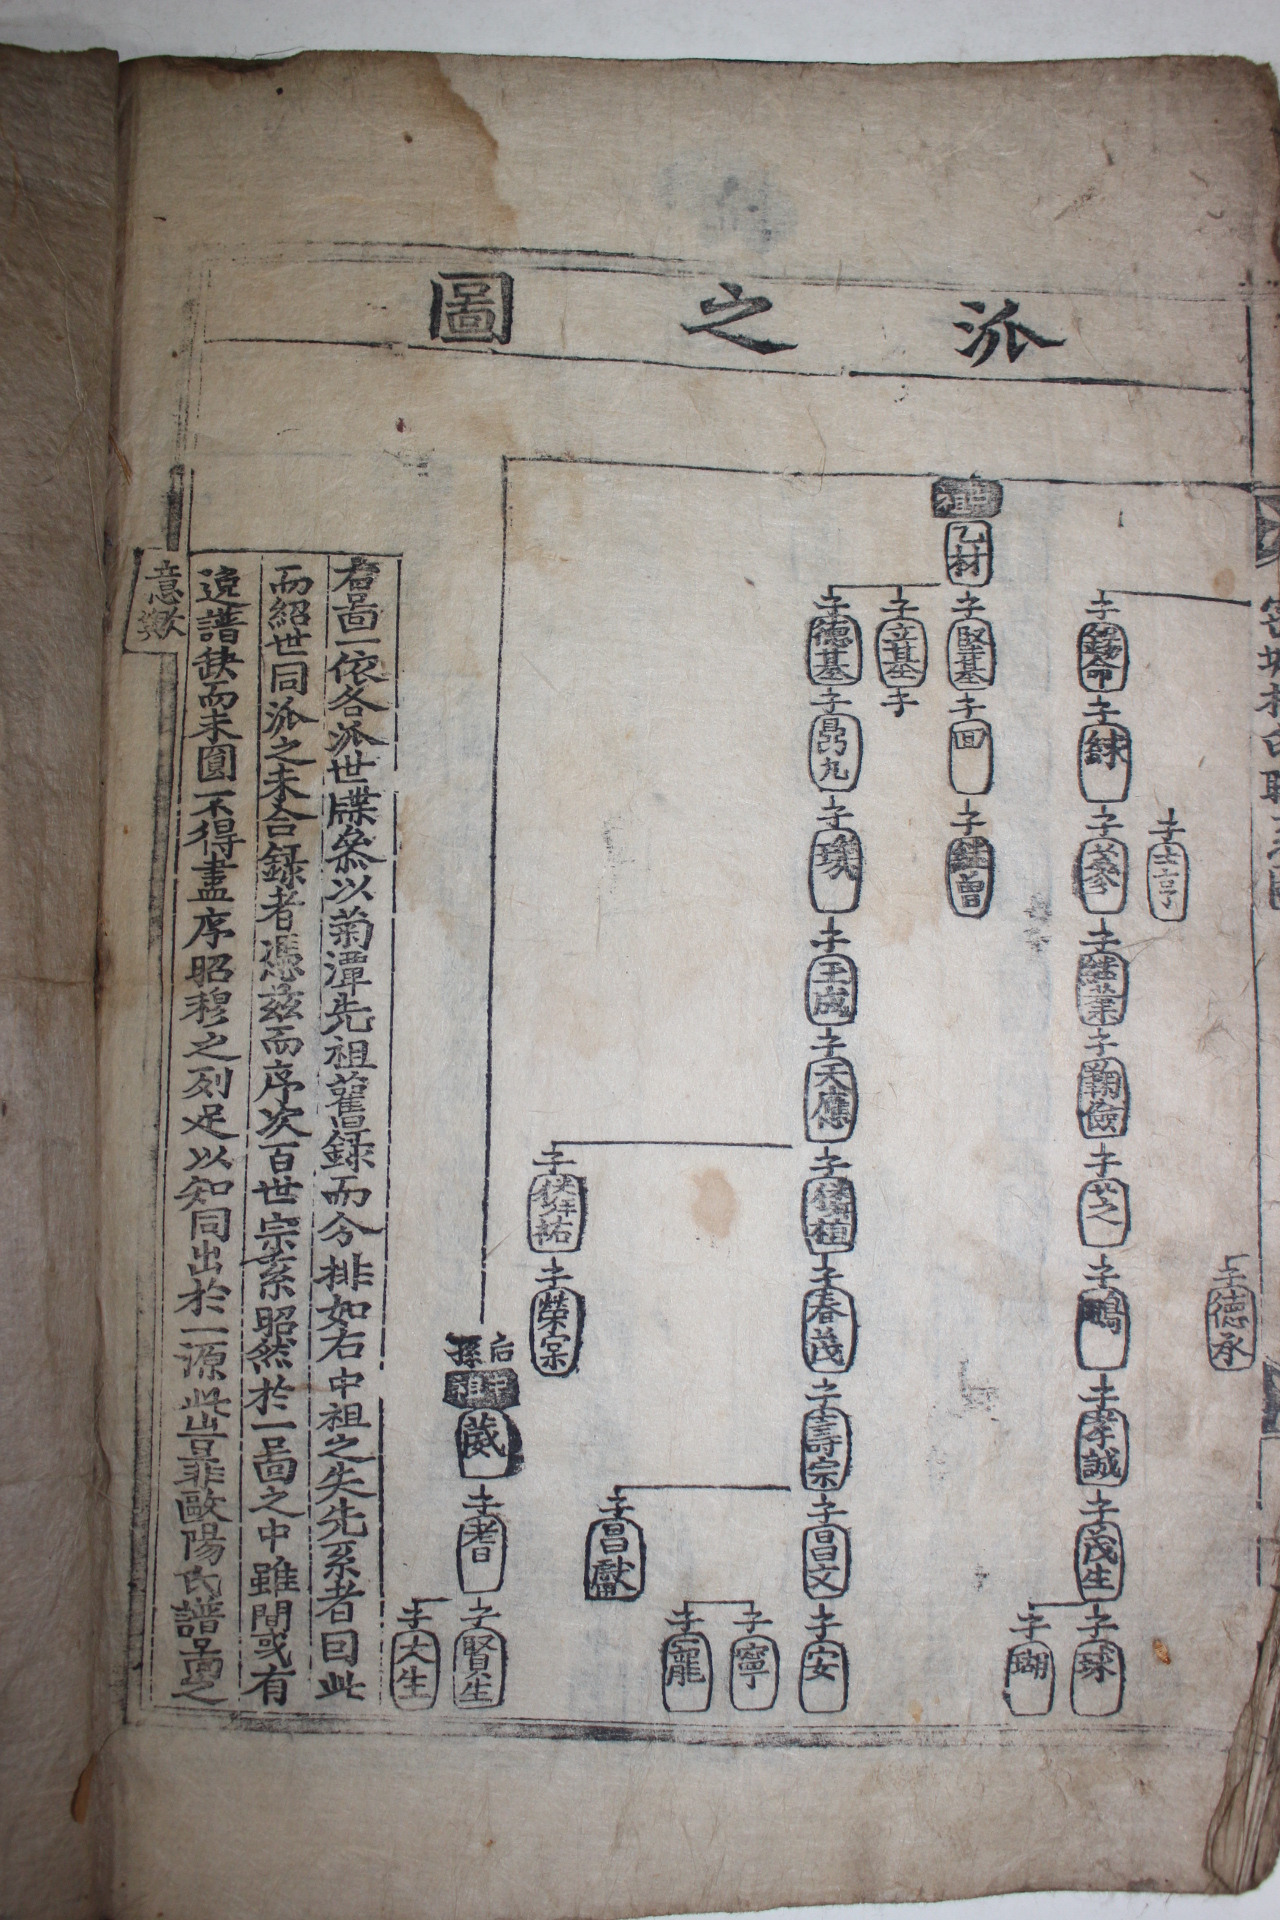 派之圖
子 德承
子 士亨
子 錫命
子 銶
子 蔘
子 繼業
子 覇儉
子 芝
子 鵬
子 孝誠
子 茂生
子 球
子 瑚
中祖 乙材
子 堅基
子 回
子 繼曾
子 立基
子
子 德基
子 鼎九
子 璞
子 王成
子 天應
子 春茂
子 壽宗
子 昌文
子 安
子 寧
子 寵
子 昌獻
子 榮宗
后孫
中祖 葳
子 耆
子 賢生
子 大生
右啚一依各派世牒叅以菊潭先祖舊録而分排如右中祖之失先系者因此
而紹世同派之未合録者憑兹而序次百世宗系昭然於一啚之中雖間或有
逸譜缺而未圓不得盡序昭穆之列足以知同出於一源此豈非歐陽氏譜啚之
意歟